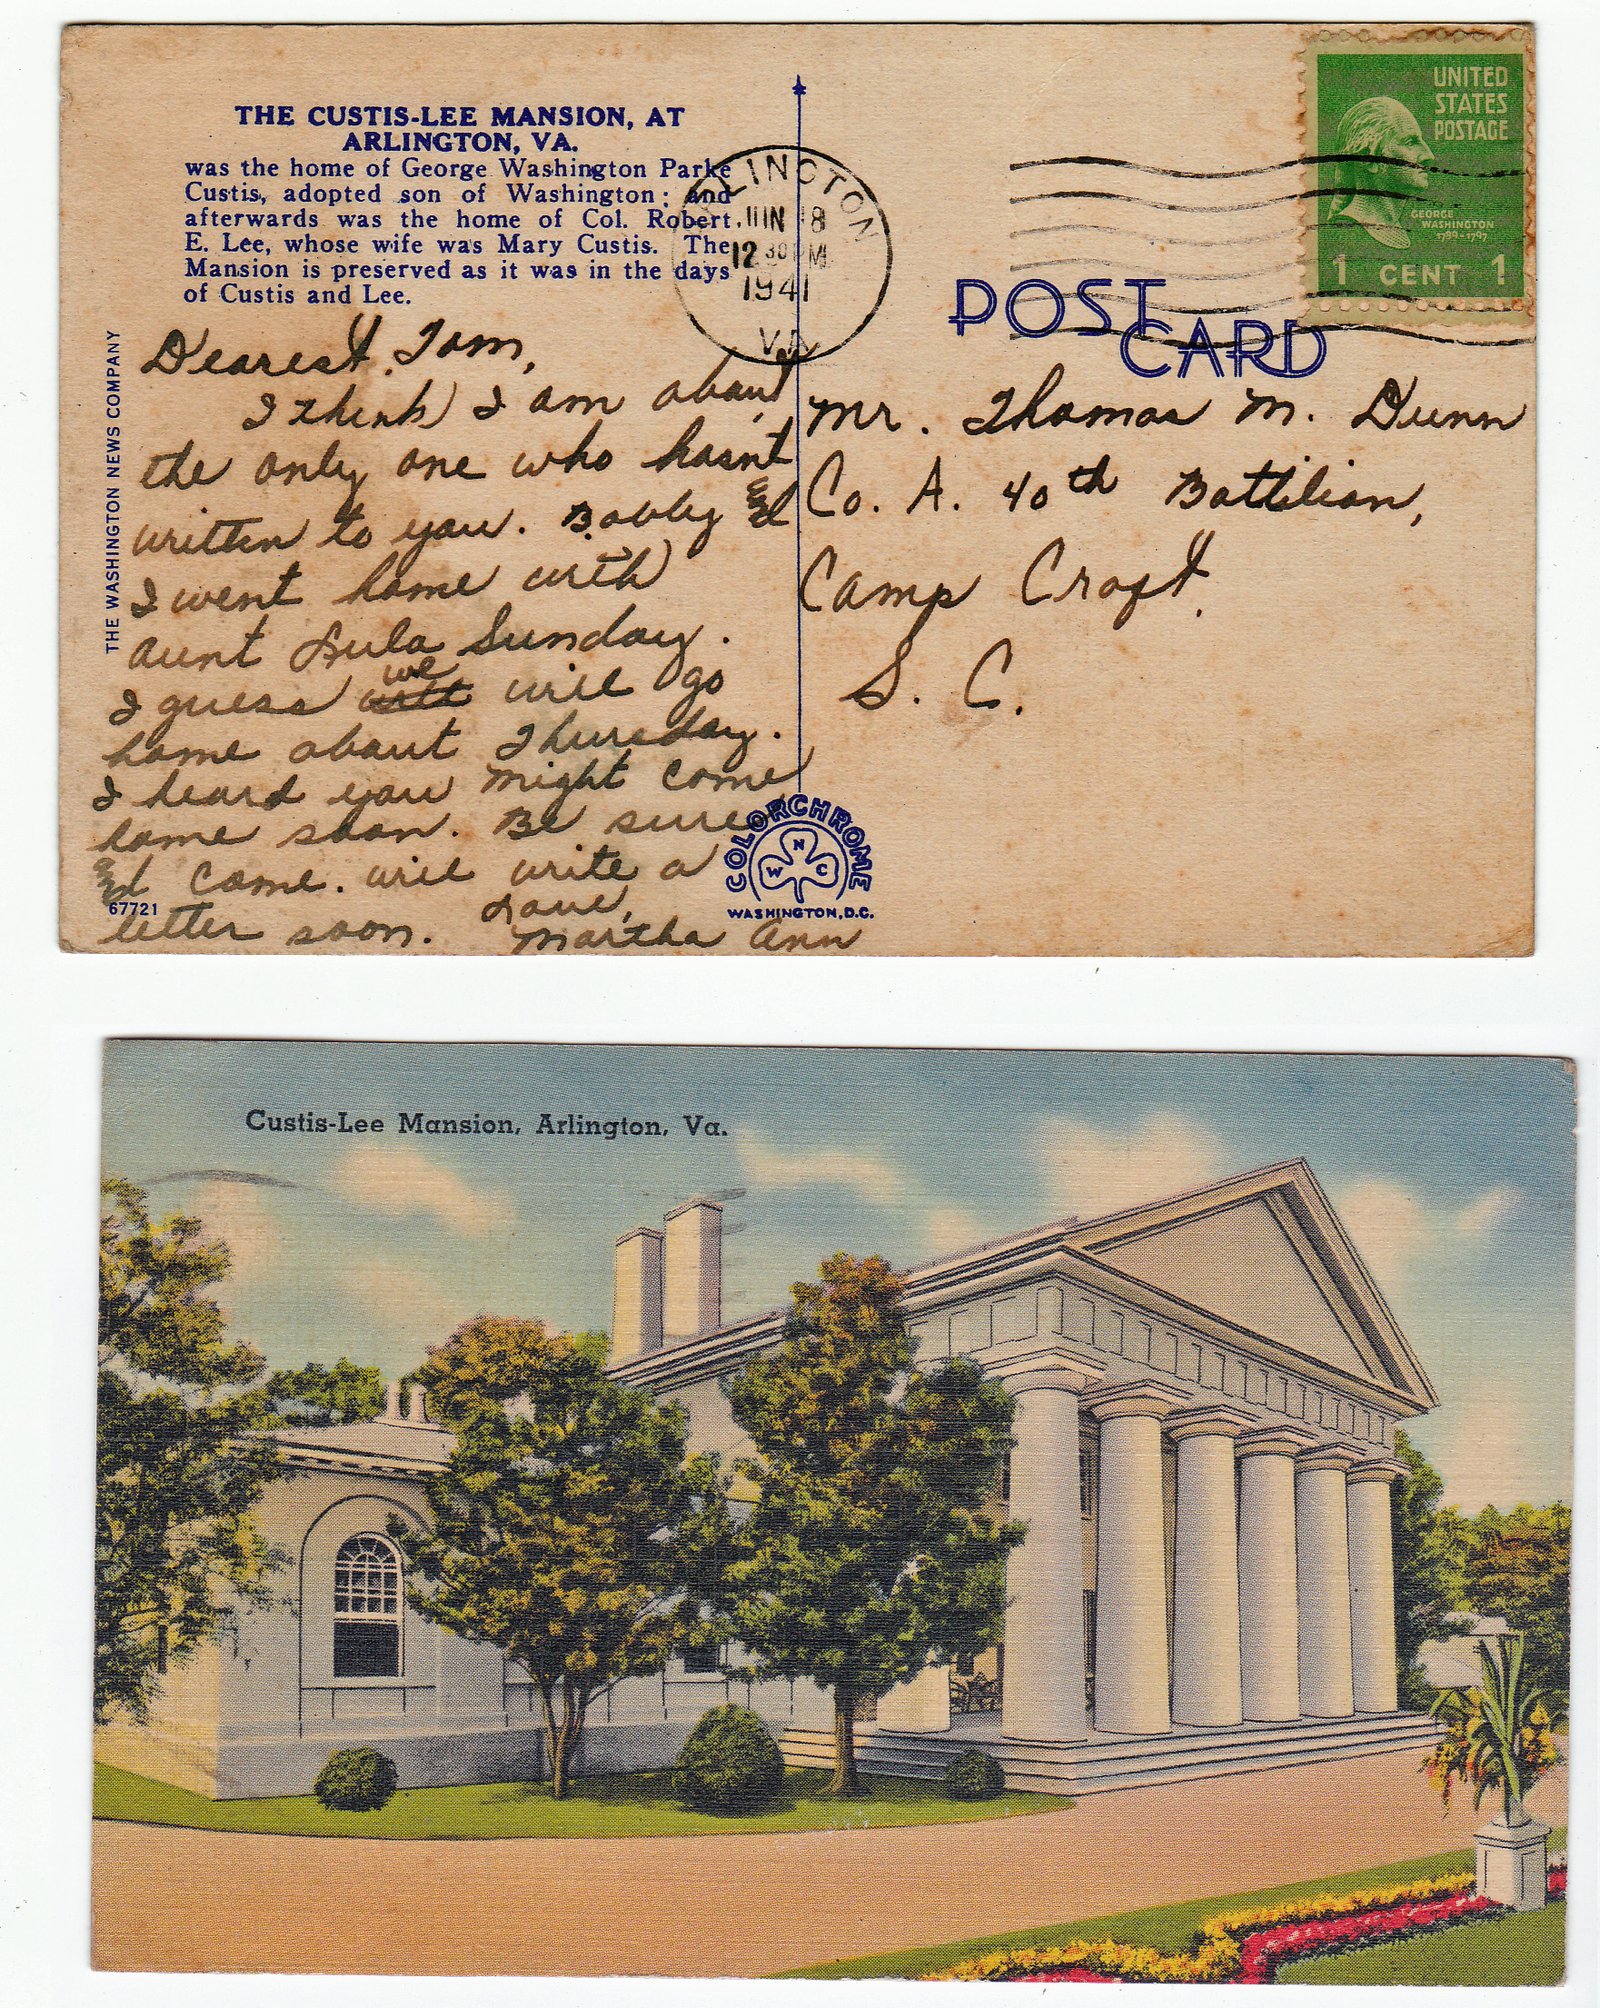 THE CUSTIS-LEE MANSION, AT
ARLINGTON, VA.
was the home of George Washington Parke
Custis, adopted son of Washington; and
afterwards was the home of Col. Robert
E. Lee, whose wife was Mary Custis. The
Mansion is preserved as it was in the days
of Custis and Lee.
THE WASHINGTON NEWS COMPANY
Dearest Tom,
I think I am about
the only one who hasn't
written to you. Bobby and
I went home with
Aunt Lula Sunday.
I guess we will go
home about Thursday.
I heard you might come
home soon. Be sure
and come. will write a
letter soon. Love,
Martha Ann
67721
ARLINGTON
JUN 18
12 30 PM
1941
VA
UNITED
STATES
POSTAGE
GEORGE
WASHINGTON
1789-1797
1 CENT 1
POST
CARD
Mr. Thomas M. Dunn
Co. A. 40th Battilion,
Camp Croft
S. C.
COLORCHROME
N
W C
WASHINGTON, D.C.
Custis-Lee Mansion, Arlington, Va.